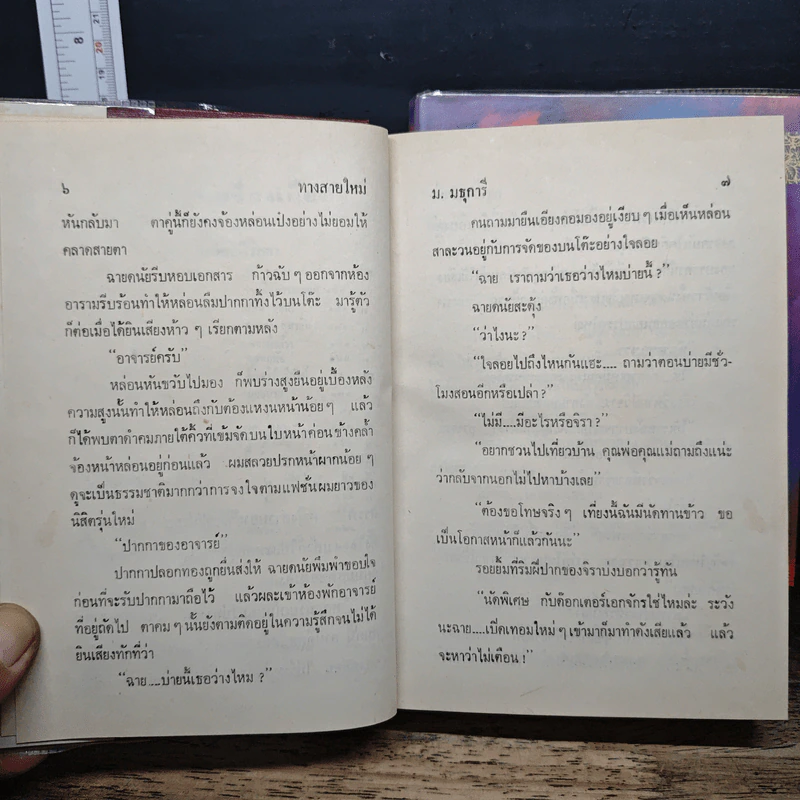 ๖ ทางสายใหม่
หันกลับมา ตาคู่นี้ก็ยังคงจ้องหล่อนเป๋งอย่างไม่ยอมให้
คลาดสายตา
ฉายดนัยรีบหอบเอกสาร ก้าวฉับ ๆ ออกจากห้อง
อารามรีบร้อนทำให้หล่อนลืมปากกาทิ้งไว้บนโต๊ะ มารู้ตัว
ก็ต่อเมื่อได้ยินเสียงห้าว ๆ เรียกตามหลัง
“อาจารย์ครับ”
หล่อนหันขวับไปมอง ก็พบร่างสูงยืนอยู่เบื้องหลัง
ความสูงนั้นทำให้หล่อนถึงกับต้องแหงนหน้าน้อย ๆ แล้ว
ก็ได้พบตาดำคมภายใต้คิ้วที่เข้มจัดบนใบหน้าค่อนข้างคล้ำ
จ้องหน้าหล่อนอยู่ก่อนแล้ว ผมสลวยปรกหน้าผากน้อย ๆ
ดูจะเป็นธรรมชาติมากกว่าการจงใจตามแฟชั่นผมยาวของ
นิสิตรุ่นใหม่
“ปากกาของอาจารย์”
ปากกาปลอกทองถูกยื่นส่งให้ ฉายดนัยพึมพำขอบใจ
ก่อนที่จะรับปากกามาถือไว้ แล้วผละเข้าห้องพักอาจารย์
ที่อยู่ถัดไป ตาคม ๆ นั้นยังตามติดอยู่ในความรู้สึกจนไม่ได้
ยินเสียงทักที่ว่า
“ฉาย....บ่ายนี้เธอว่างไหม ?”
ม. มธุการี ๗
คนถามมายืนเอียงคอมองอยู่เงียบ ๆ เมื่อเห็นหล่อน
สาละวนอยู่กับการจัดของบนโต๊ะอย่างใจลอย
“ฉาย เราถามว่าเธอว่างไหมบ่ายนี้ ?”
ฉายดนัยสะดุ้ง
“ว่าไงนะ ?”
“ใจลอยไปถึงไหนกันแฮะ.... ถามว่าตอนบ่ายมีชั่ว-
โมงสอนอีกหรือเปล่า ?”
“ไม่มี....มีอะไรหรือจิรา ?”
“อยากชวนไปเที่ยวบ้าน คุณพ่อคุณแม่ถามถึงแน่ะ
ว่ากลับจากนอกไม่ไปหาบ้างเลย”
“ต้องขอโทษจริง ๆ เที่ยงนี้ฉันมีนัดทานข้าว ขอ
เป็นโอกาสหน้าก็แล้วกันนะ”
รอยยิ้มที่ริมฝีปากของจิราบ่งบอกว่ารู้ทัน
“นัดพิเศษ กับด๊อกเตอร์เอกจักรใช่ไหมล่ะ ระวัง
นะฉาย....เปิดเทอมใหม่ ๆ เข้ามาก็มาทำดังเสียแล้ว แล้ว
จะหาว่าไม่เตือน !”
8
21
20
19